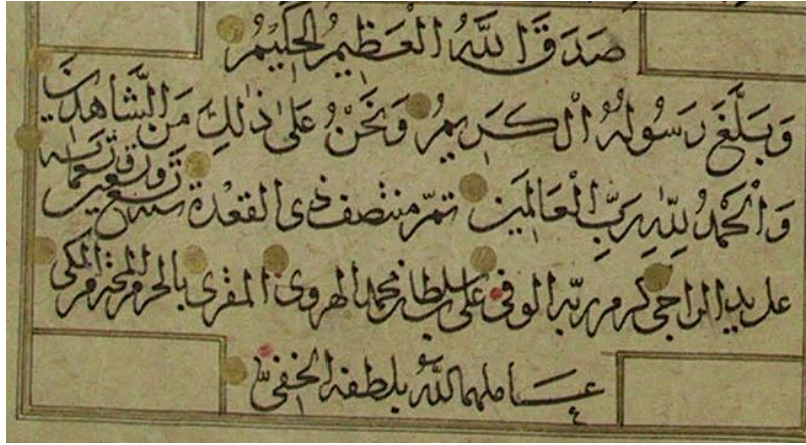 صَدَقَ اللّٰهُ الْعَظِيمُ الْحَكِيمُ
وَبَلَّغَ رَسُولُهُ الْكَرِيمُ وَنَحْنُ عَلَىٰ ذٰلِكَ مَنَ الشَّاهِدِينَ
وَالْحَمْدُ لِلّٰهِ رَبِّ الْعَالَمِينَ تم منتصف ذى القعدة سنة
على يد الراجى كرم ربّه الوفى على بن سلطان محمد الهروى المقرى بالحرم المحترم المكى
عاملهما اللّٰه بلطفه الخفى